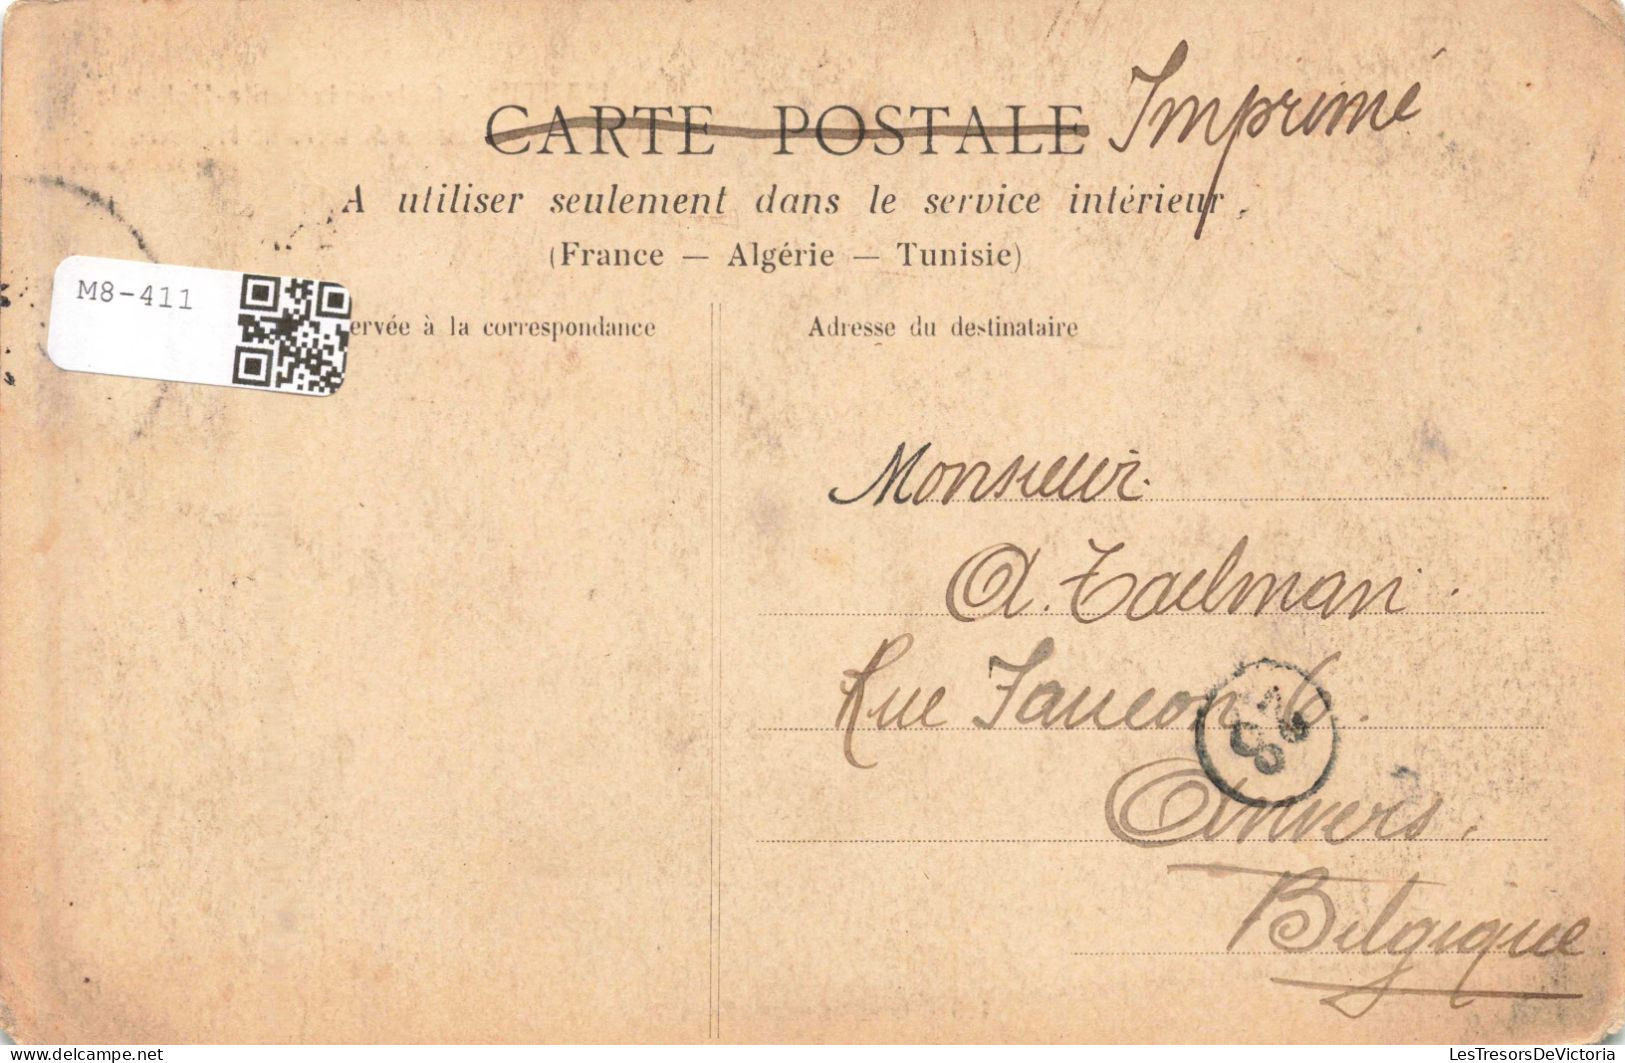 CARTE POSTALE Imprimé
A utiliser seulement dans le service intérieur
(France — Algérie — Tunisie)
M8-411
ervée à la correspondance
Adresse du destinataire
Monsieur
A. Taelman.
Rue 6.
Anvers.
Belgique
www.delcampe.net
LesTresorsDeVictoria